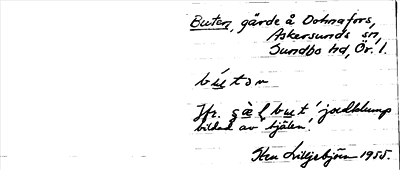 Buten, gärde å Dohnafors,
Askersunds sn,
Sundbo hd, Ör. l.
bútən
Jfr. gæ̀ɭbut 'jordklump
bildad av tjälen.'
Sten Liljebjörn 1955.